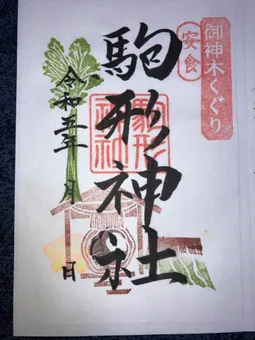 御神木くぐり
安食
駒形神社
駒形神社
令和五年 月 日